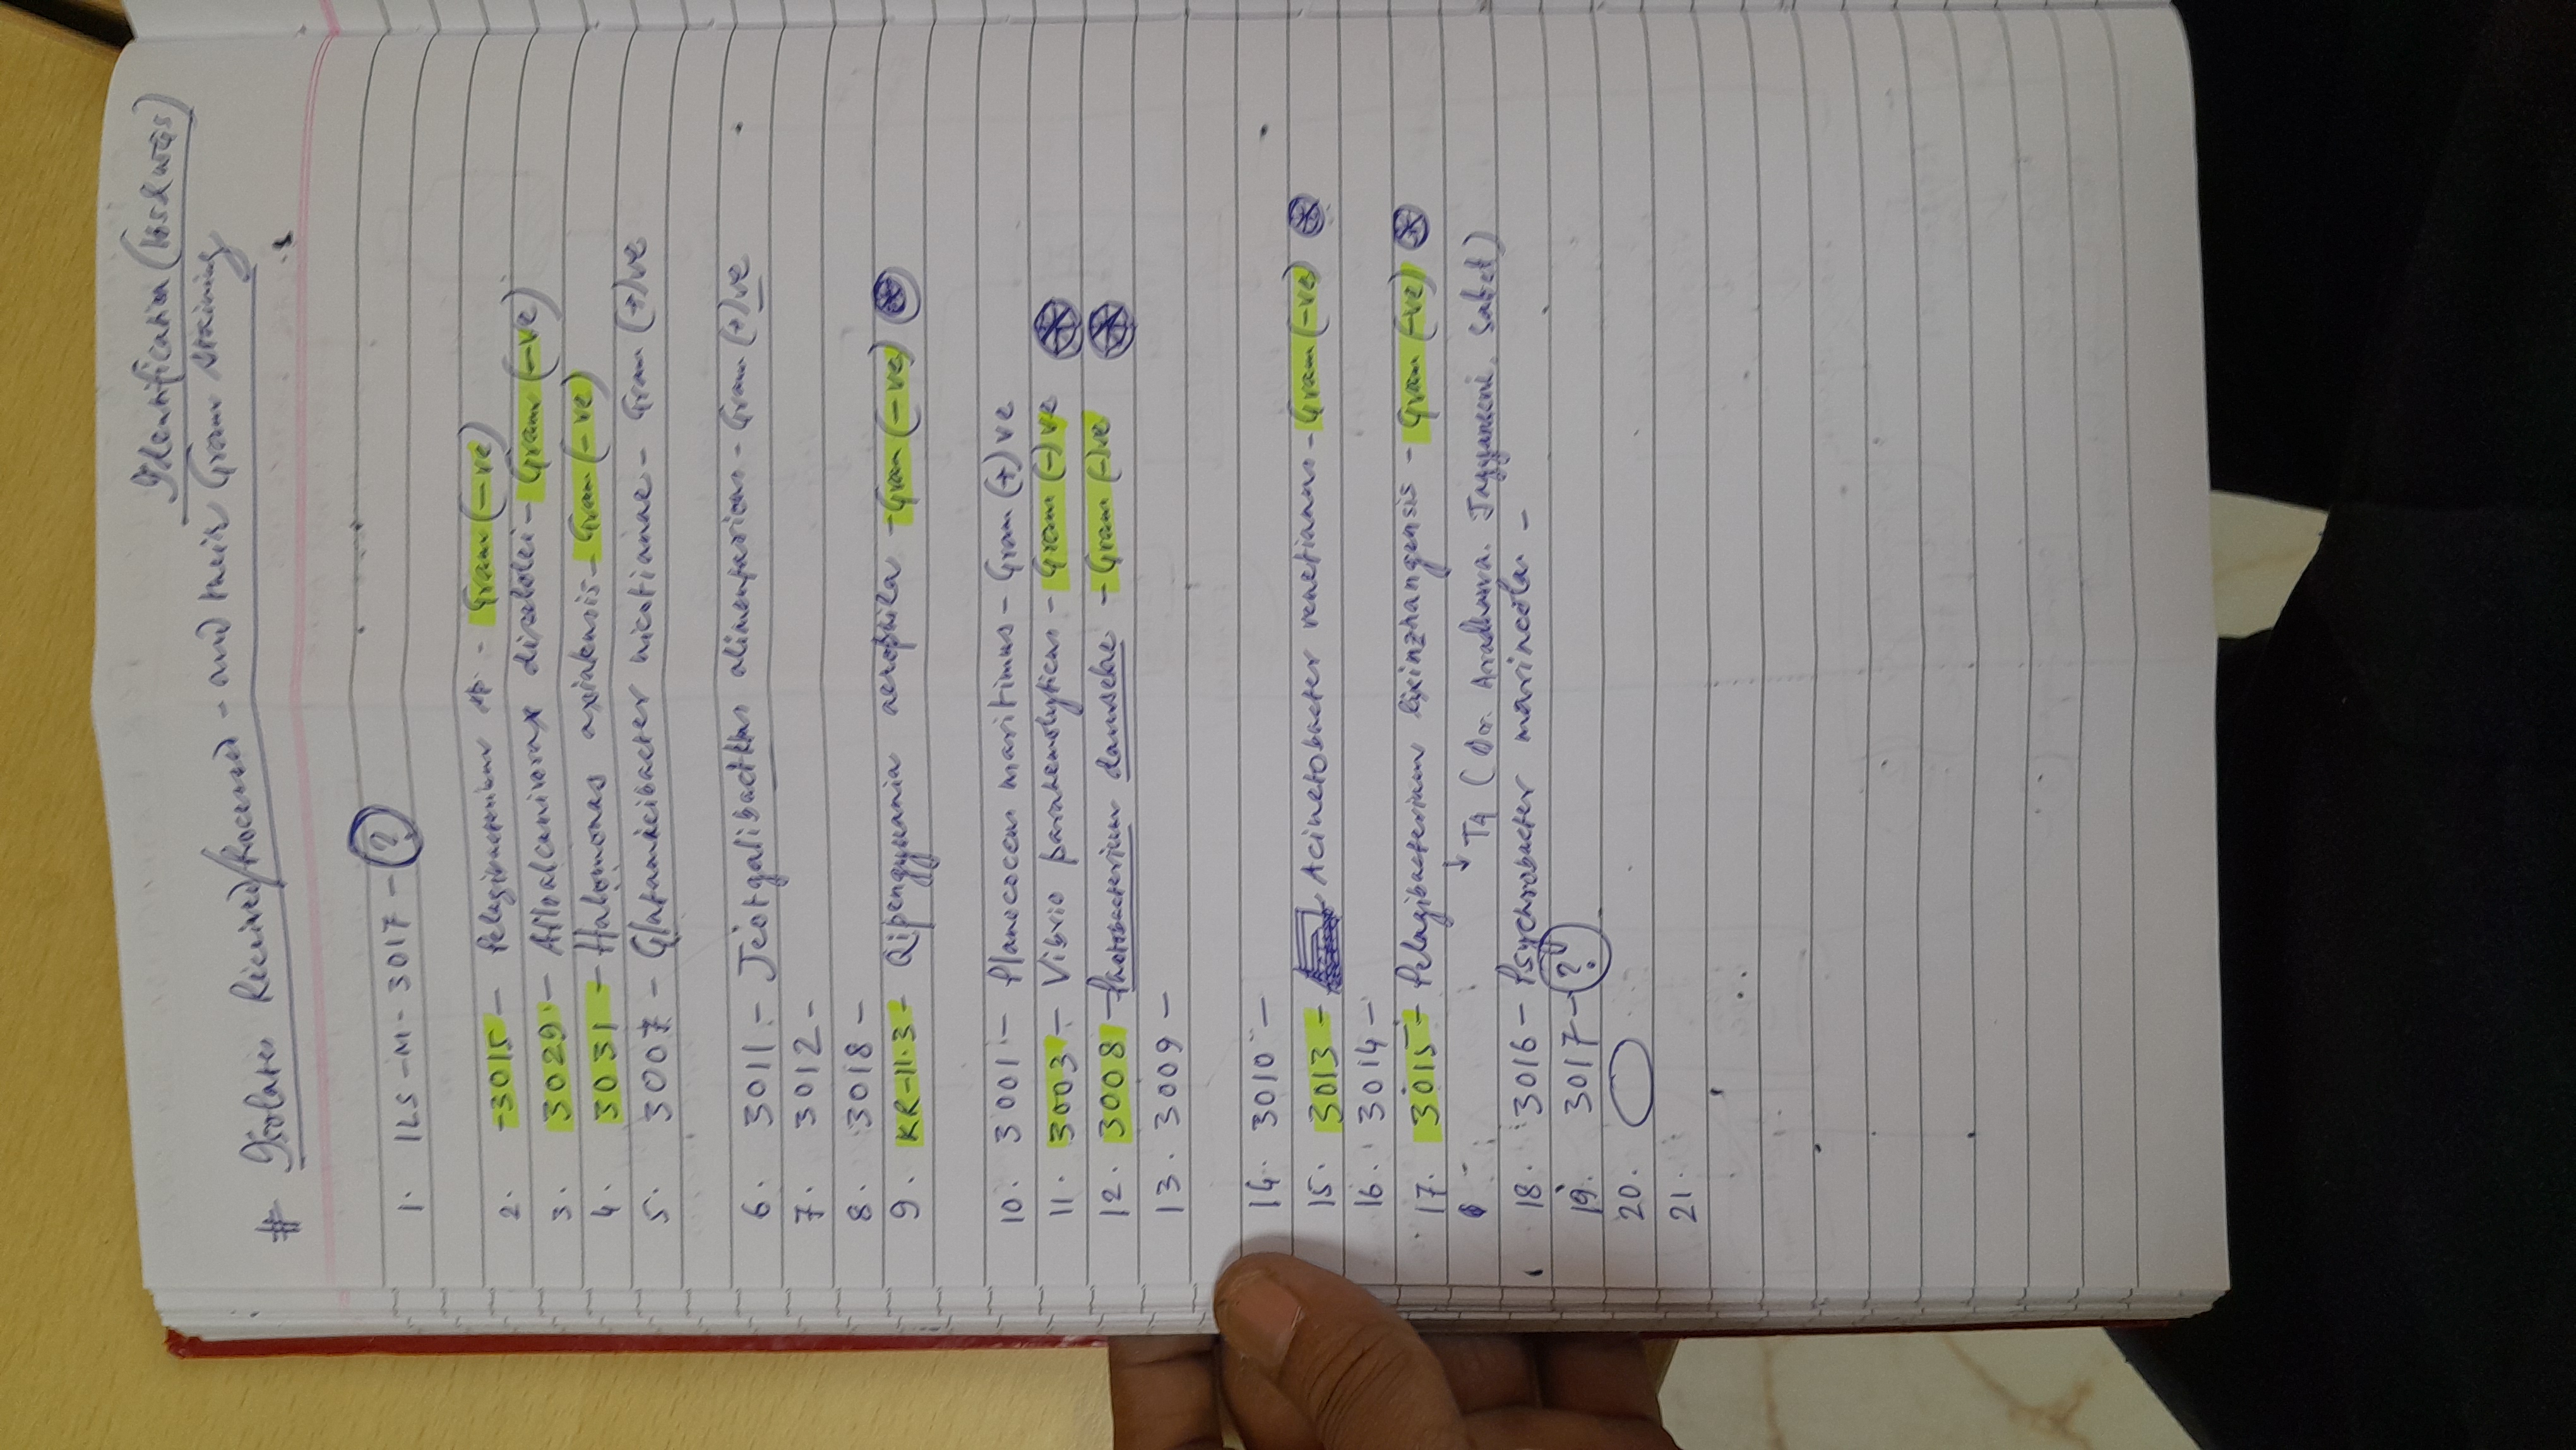 Identification (
# Isolates Received/Processed - and their Gram staining
1. ILS-M-3017 - (?)
2. -3015 - Pelagibacterium sp. - Gram (-ve)
3. 3029 - Alloalcanivorax dieselolei - Gram (-ve)
4. 3031 - Halomonas axialensis - Gram (-ve)
5. 3007 - Glutamicibacter nicotianae - Gram (+)ve
6. 3011 - Jeotgalibacillus alimentarius - Gram (+)ve
7. 3012 -
8. 3018 -
9. KR-11.3 - Qipengyuania aerophila - Gram (-ve)
10. 3001 - Planococcus maritimus - Gram (+)ve
11. 3003 - Vibrio parahemolyticus - Gram (-)ve
12. 3008 - Photobacterium damselae - Gram (-)ve
13. 3009 -
14. 3010 -
15. 3013 - Acinetobacter venetianus - Gram (-ve)
16. 3014 -
17. 3015 - Pelagibacterium lixinzhangensis - Gram (-ve)
↓ T4 (Dr. Aradhana. Jagyaneni. Sabet)
18. 3016 - Psychrobacter marincola -
19. 3017 - (?)
20.
21.